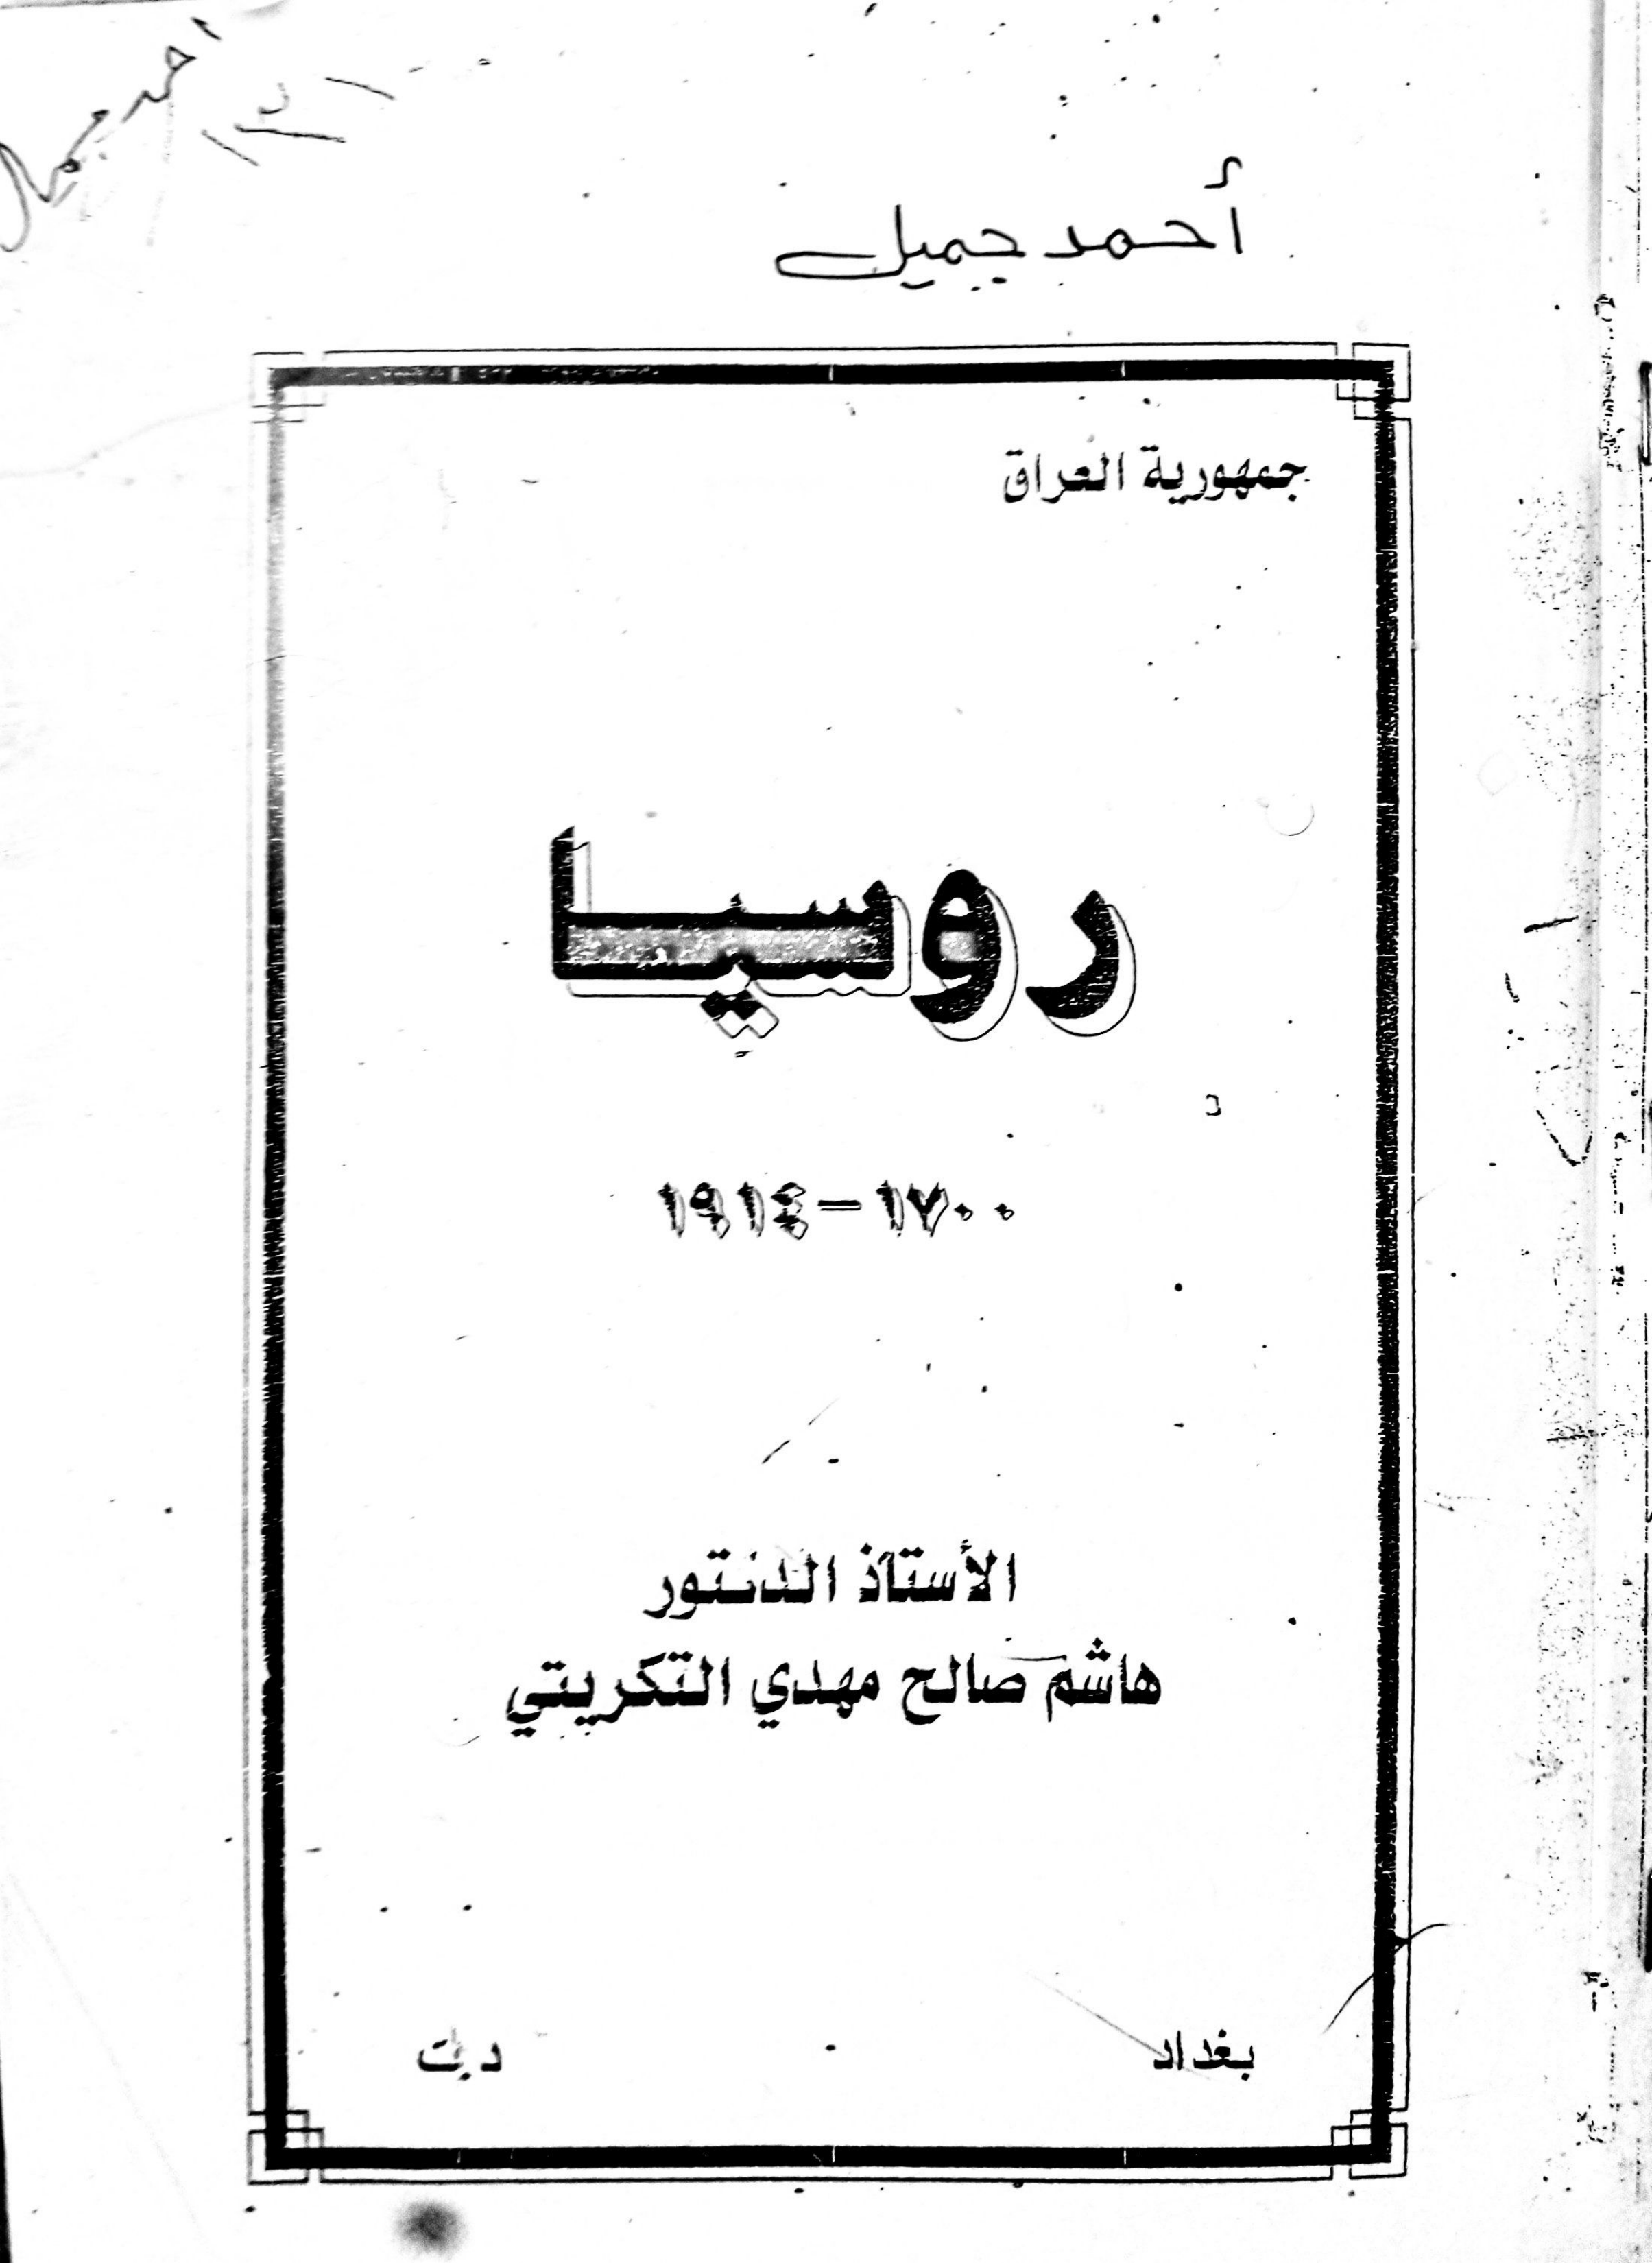 أحمد جميل
جمهورية العراق
روسيا
١٧٠٠ - ١٩١٤
الأستاذ الدكتور
هاشم صالح مهدي التكريتي
بغداد
د.ت